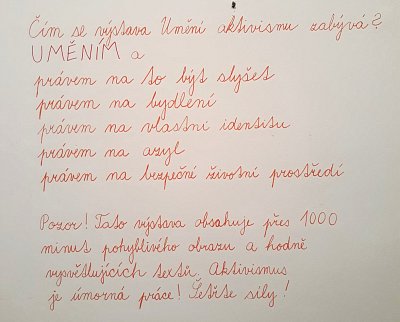 Čím se výstava Umění aktivismu zabývá?
UMĚNÍM a
právem na to být slyšet
právem na bydlení
právem na vlastní identitu
právem na azyl
právem na bezpečné životní prostředí
Pozor! Tato výstava obsahuje přes 1000
minut pohyblivého obrazu a hodně
vysvětlujících textů. Aktivismus
je úmorná práce! Šetřte síly!